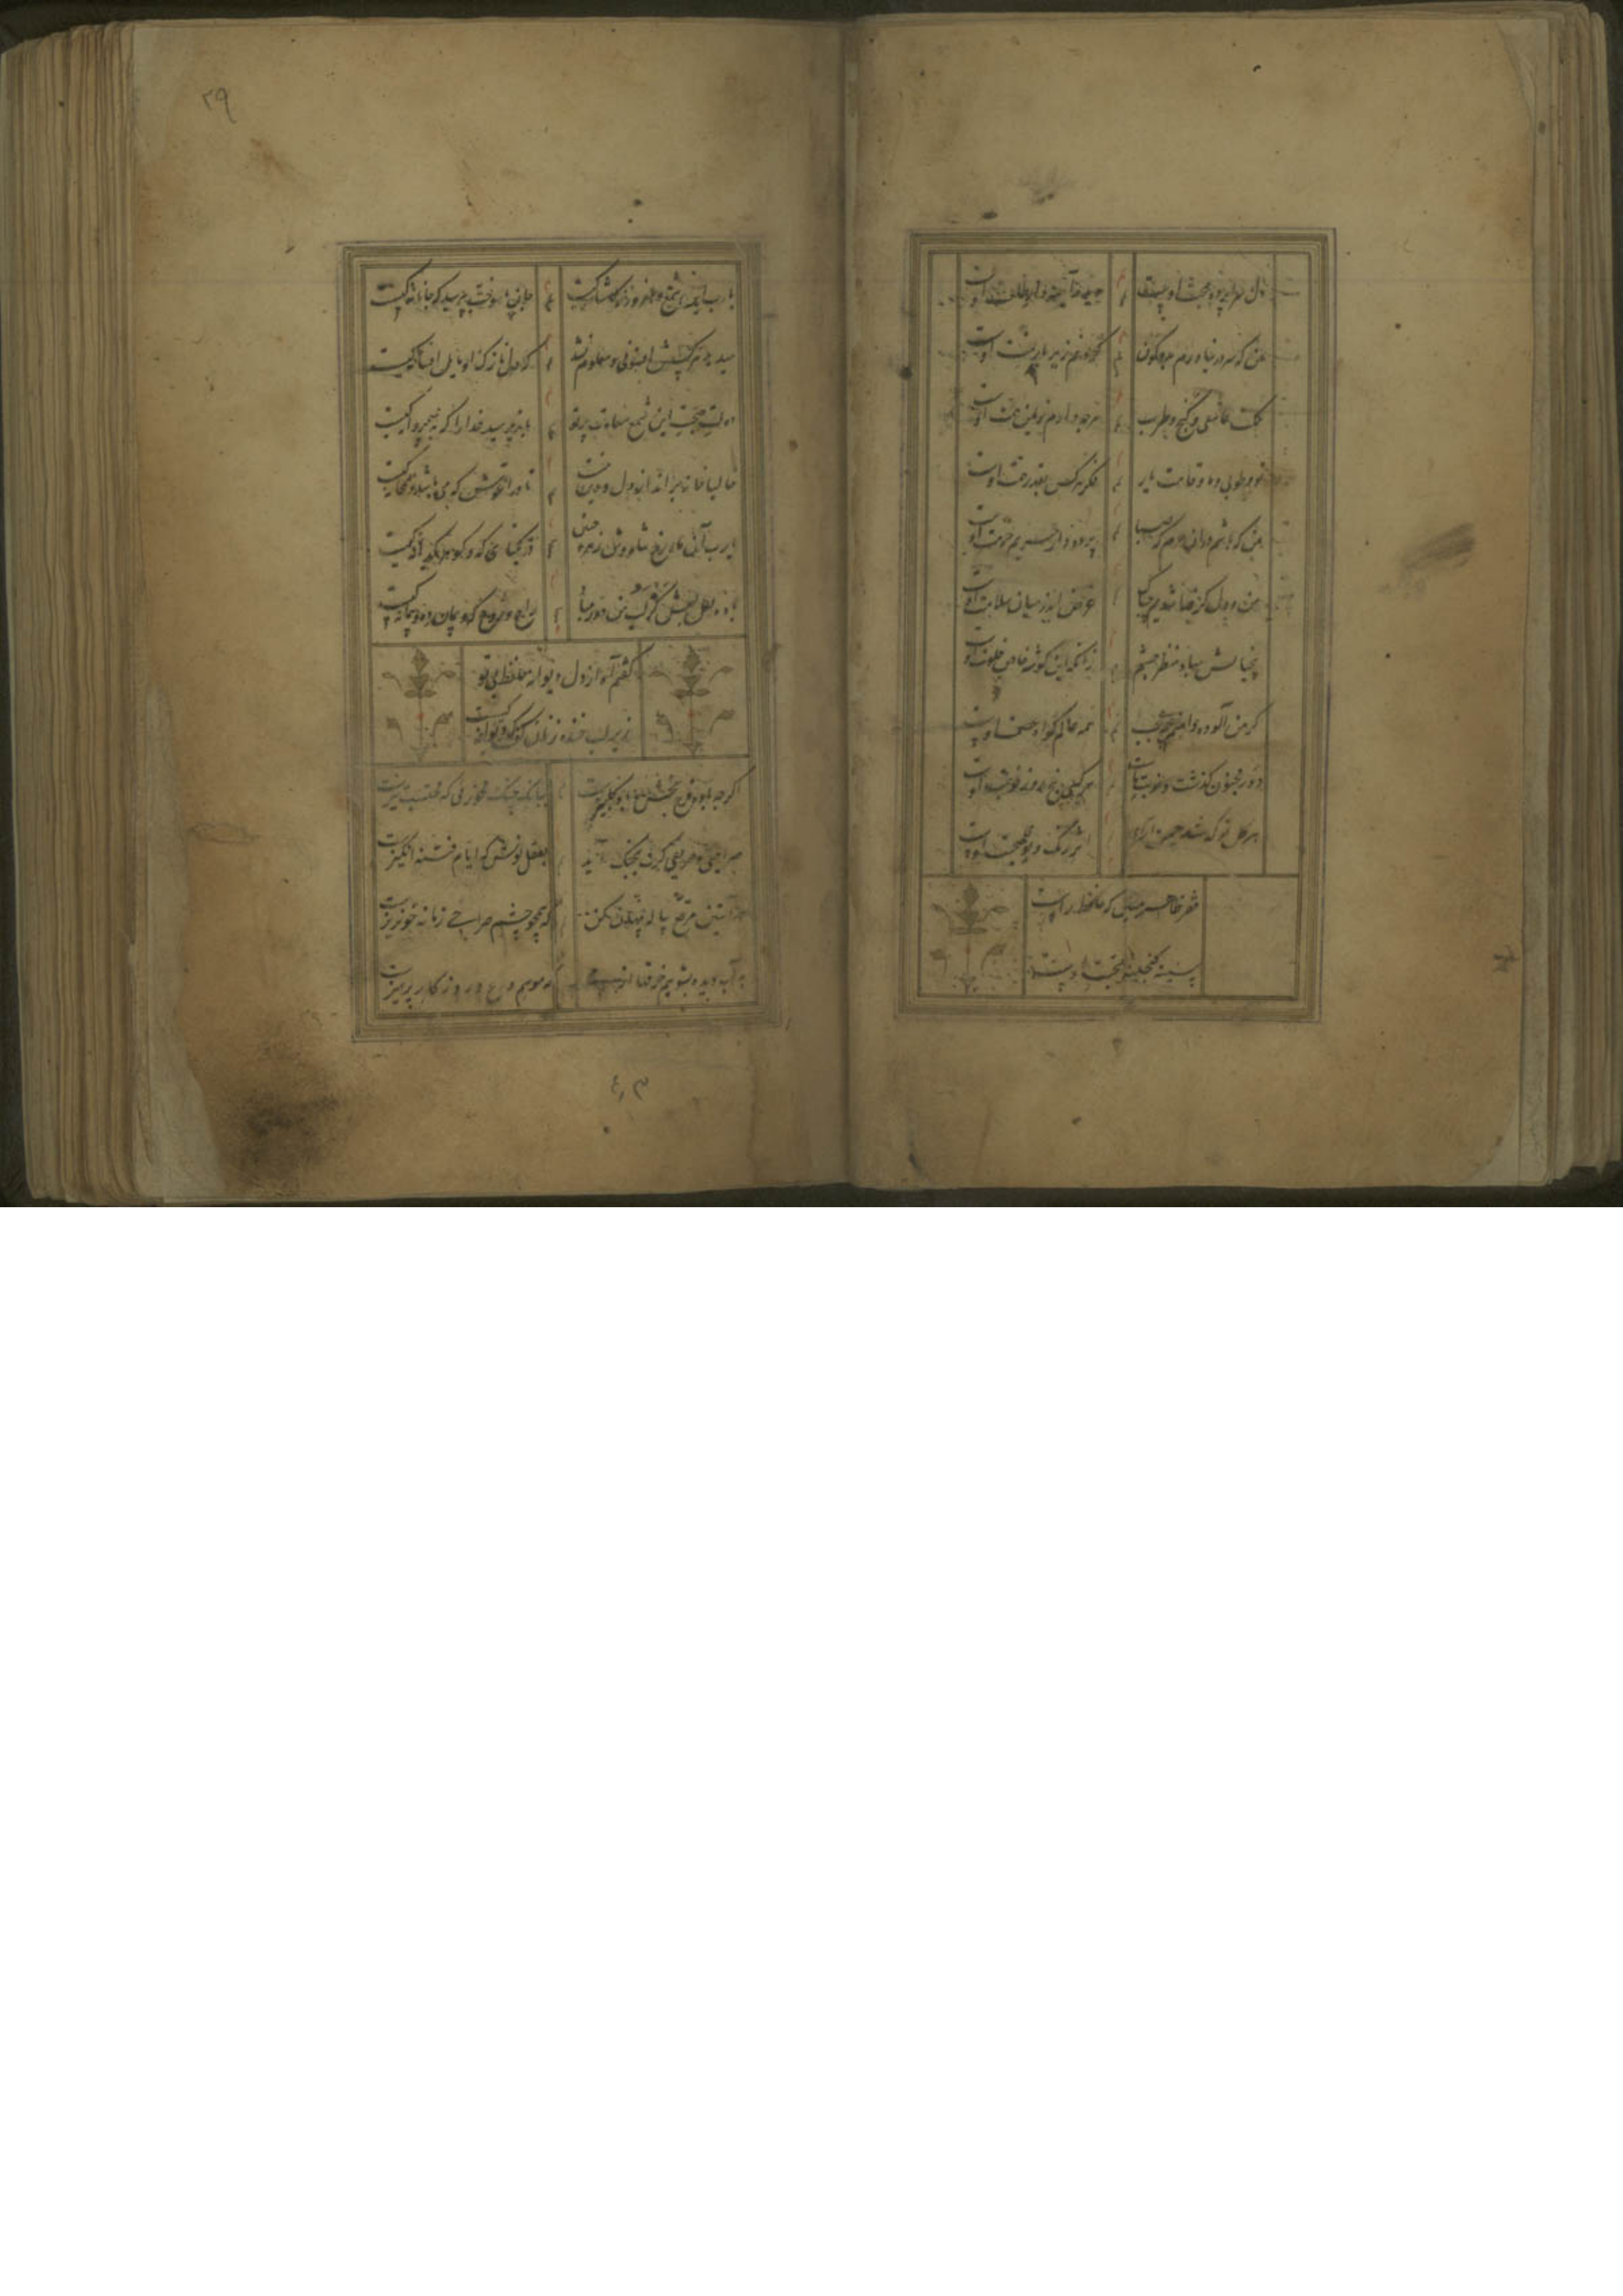 دل سراپرده محبت اوست دیده آینه دار طلعت اوست
من که سر در نیاورم بدو کون گردنم زیر بار منت اوست
تو و طوبی و ما و قامت یار فکر هر کس بقدر همت اوست
من که باشم در آن حرم که صبا پرده دار حریم حرمت اوست
من و دل گر فنا شدیم چه باک غرض اندر میان سلامت اوست
بی خیالش مباد منظر چشم زانکه این گوشه خاص خلوت اوست
گر من آلوده دامنم چه عجب همه عالم گواه عصمت اوست
دور مجنون گذشت و نوبت ماست هر کسی پنج روزه نوبت اوست
هر گل نو که شد چمن آرای اثر رنگ و بوی صحبت اوست
فقر ظاهر مبین که حافظ را
سینه گنجینه محبت اوست
۲۹
یا رب این شمع دل افروز ز کاشانه کیست جان ما سوخت بپرسید که جانانه کیست
میدمد هر کسش افسونی و معلوم نشد که دل نازک او مایل افسانه کیست
دولت صحبت این شمع سعادت پرتو باز پرسید خدا را که به پروانه کیست
حالیا خانه برانداز دل و دین منست تا در آغوش که می باشد و همخانه کیست
یا رب آن شاه وش ماه رخ زهره جبین در یکتای که و گوهر یکدانه کیست
باده لعل لبش کز لب من دور مباد راح روح که و پیمان ده پیمانه کیست
گفتم آه از دل دیوانه حافظ بی تو
زیر لب خنده زنان گفت که دیوانه کیست
اگرچه باده فرح بخش و باد گلبیزست ببانگ چنگ مخور می که محتسب تیزست
صراحی و حریفی گرت بچنگ آید بعقل نوش که ایام فتنه انگیزست
در آستین مرقع پیاله پنهان کن که همچو چشم صراحی زمانه خونریزست
به آب دیده بشوییم خرقها از می که موسم ورع و روزگار پرهیزست